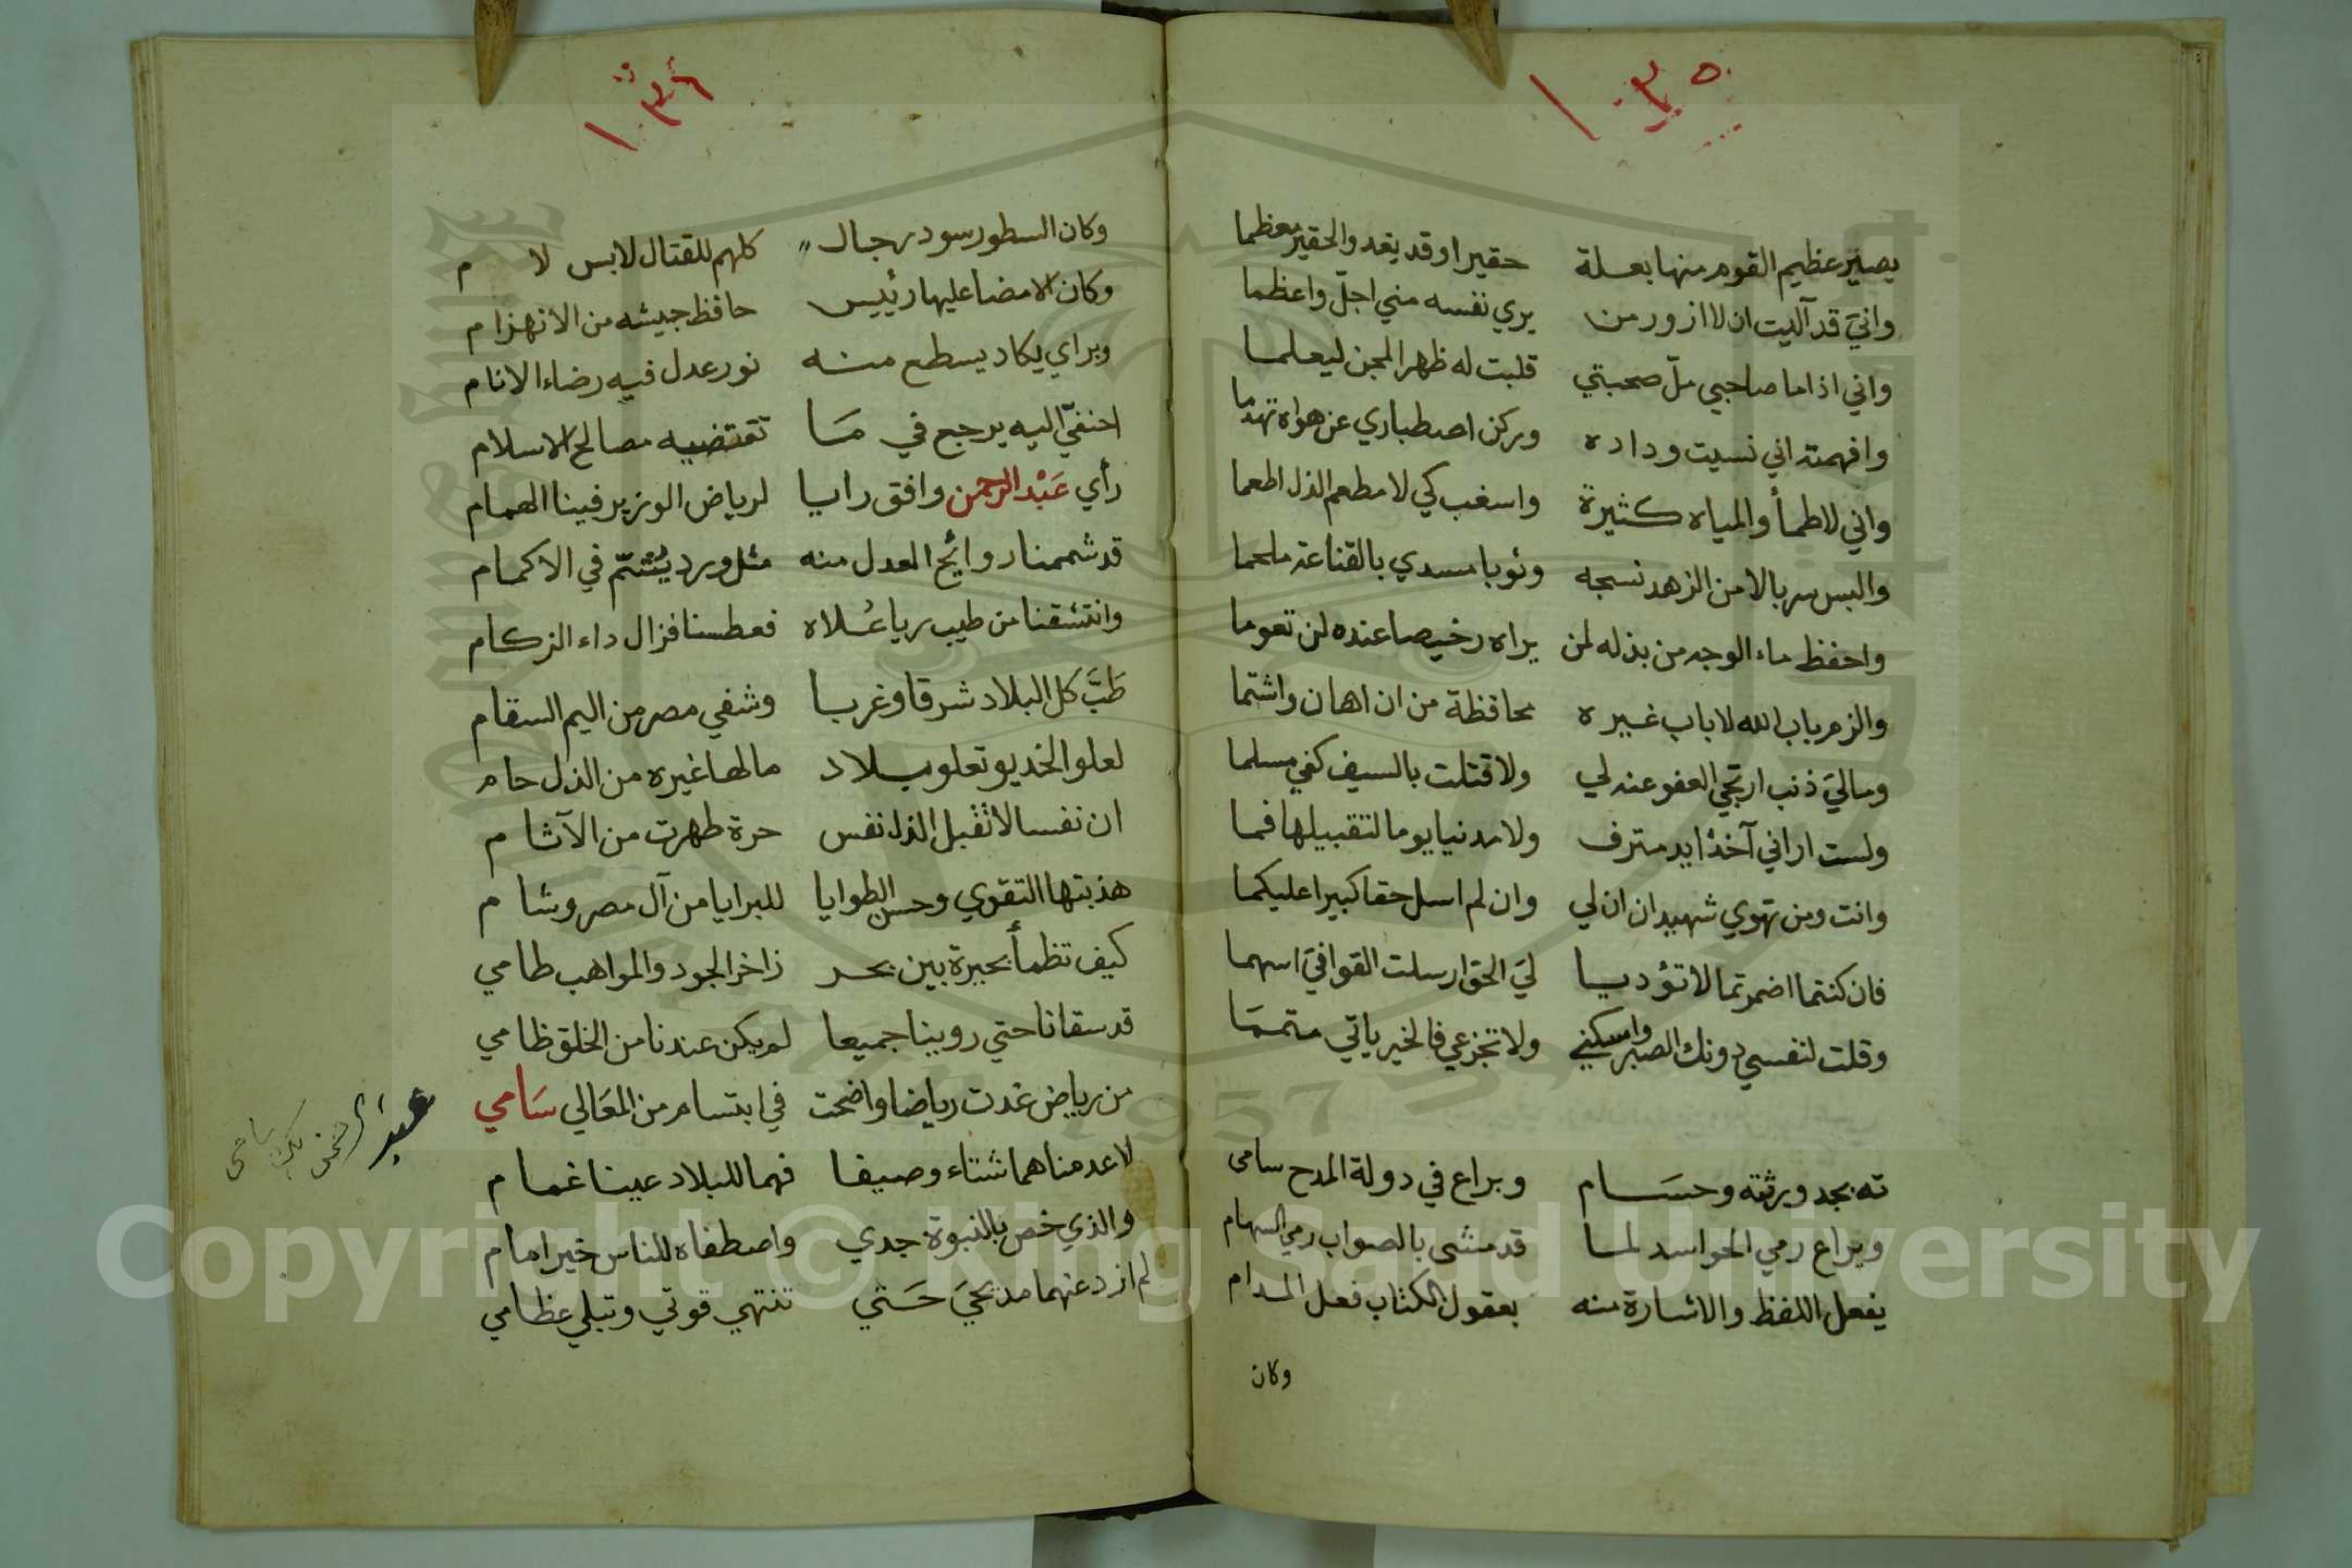 ١٠٣٥
يصير عظيم القوم منها بعلة حقيرا وقد يغدو الحقير معظما
واني قد آليت ان لا ازور من يري نفسه مني اجلّ واعظما
واني اذا ما صاحبي ملّ صحبتي قلبت له ظهر المجن ليعلما
وافهمته اني نسيت وداده وركن اصطباري عن هواه تهدما
واني لاظمأ والمياه كثيرة واسغب كي لا مطعم الذل اطعما
والبس سربالا من الزهد نسجه وثوبا مسدي بالقناعة ملحما
واحفظ ماء الوجه من بذله لمن يراه رخيصا عنده لن تعوما
والزم باب الله لا باب غيره محافظة من ان اهان واشتما
وماليَ ذنب ارتجي العفو عنه لي ولا قتلت بالسيف كفي مسلما
ولست اراني آخذا يد مترف ولا مدنيا يوما لتقبيلها فما
وانت ومن تهوي شهيدان ان لي وان لم اسل حقا كبيرا عليكما
فان كنتما اضمرتما لا تؤديا ليَ الحق ارسلت القوافيَ اسهما
وقلت لنفسي دونك الصبر واسكني ولا تجزعي فالخير ياتي متمما
ته بجد ورثته وحسام وبراع في دولة المدح سامي
وبراع رمي الحواسد لما قد مشى بالصواب رمي السهام
يفعل اللفظ والاشارة منه بعقول الكتاب فعل المدام
وكان
١٠٣٦
وكان السطور سود رجال كلهم للقتال لابس لام
وكان الامضا عليها رئيس حافظ جيشه من الانهزام
وبراي يكاد يسطع منه نور عدل فيه رضاء الانام
احنفيّ اليه يرجع في ما تقتضيه مصالح الاسلام
رأي عبد الرحمن وافق رايا لرياض الوزير فينا الهمام
قد شممنا روايح العدل منه مثل ورد يشتمّ في الاكمام
وانتشقنا من طيب ريا علاه فعطسنا فزال داء الزكام
طبَّ كل البلاد شرقا وغربا وشفي مصر من اليم السقام
لعلو الخديو تعلو بلاد مالها غيره من الذل حام
ان نفسا لا تقبل الذل نفس حرة طهرت من الآثام
هذبتها التقوي وحسن الطوايا للبرايا من آل مصر وشام
كيف تظمأ بحيرة بين بحر زاخر الجود والمواهب طامي
قد سقانا حتي روينا جميعا لم يكن عندنا من الخلق ظامي
من رياض غدت رياضا واضحت في ابتسام من المعالي سامي
عبد الرحمن بك سامي
لا عدمناهما شتاء وصيفا فهما للبلاد عينا غمام
والذي خص بالنبوة جدي واصطفاه للناس خير امام
لم ازد عنهما مديحيَ حتي تنتهي قوتي وتبلي عظامي
Copyright © King Saud University
1957